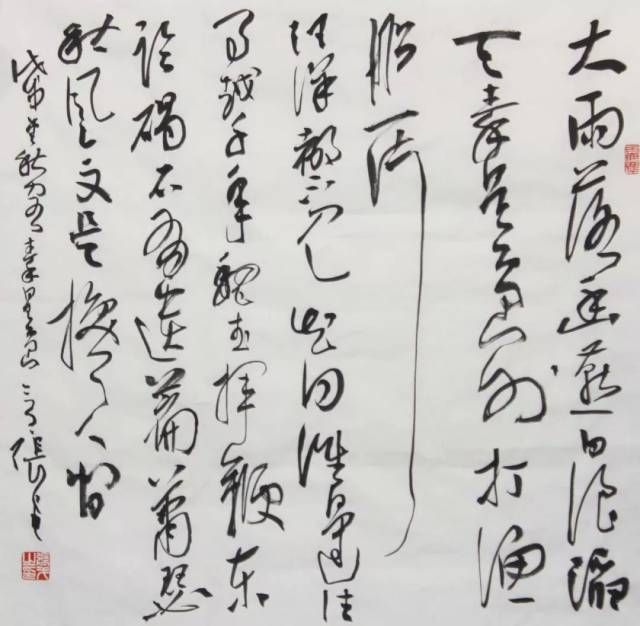 大雨落幽燕白浪滔
天秦皇岛外打渔
船一片
汪洋都不见知向谁边往
事越千年魏武挥鞭东
临碣石有遗篇萧瑟
秋风今又是换了人间
秋月 秦皇岛 张